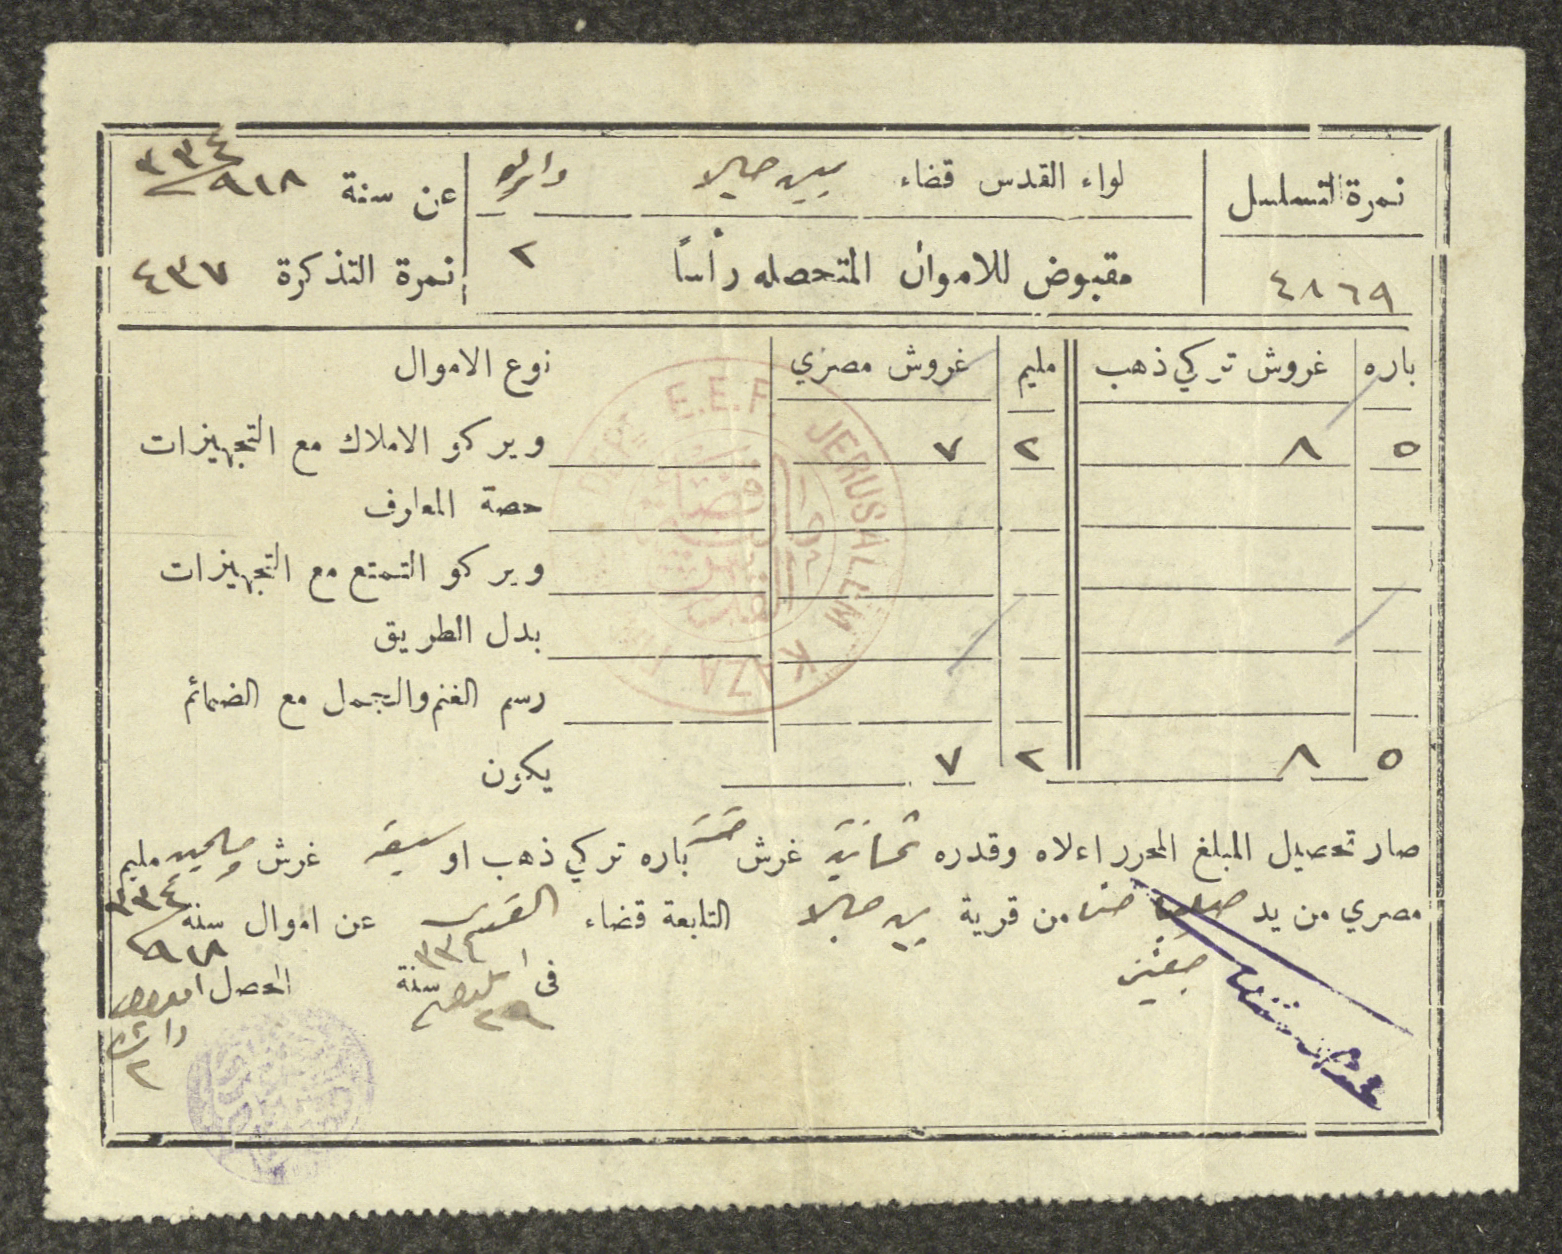 نمرة التسلسل
٤٨٦٩
لواء القدس قضاء بيت جالا دائرة
مقبوض للاموال المتحصله رأساً ٢
عن سنة ٣٣٤ ٩١٨
نمرة التذكرة ٤٣٧
باره غروش تركي ذهب مليم غروش مصري نوع الاموال
٥ ٨ ٢ ٧ ويركو الاملاك مع التجهيزات
حصة المعارف
ويركو التمتع مع التجهيزات
بدل الطريق
رسم الغنم والجمل مع الضمائم
٥ ٨ ٢ ٧ يكون
صار تحصيل المبلغ المحرر اعلاه وقدره ثمانية غرش خمسة باره تركي ذهب او سبعة غرش ومليمين مليم
مصري من يد حنا من قرية بيت جالا التابعة قضاء القدس عن اموال سنة ٣٣٤ ٩١٨
فى ٢٩ ايلول سنة ٣٣٤ المحصل
٢
E.E.F. JERUSALEM KAZA
قضاء القدس